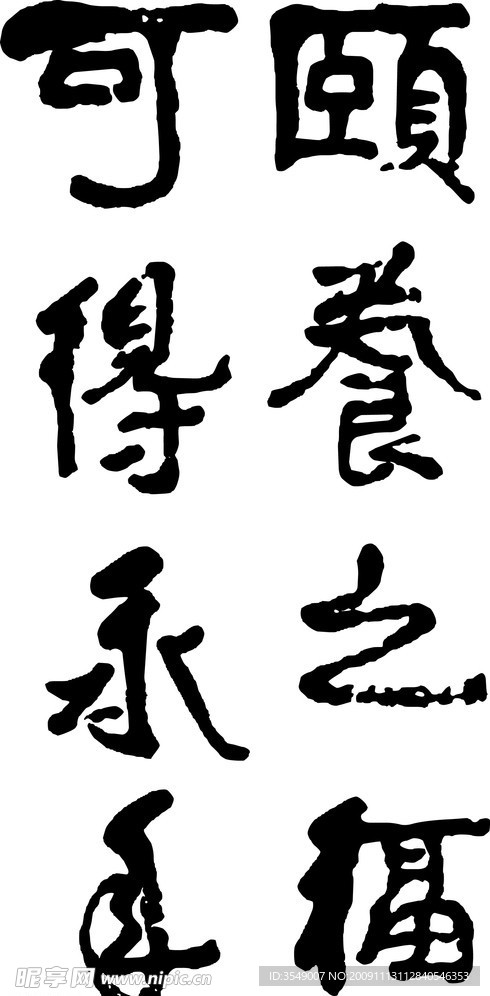 頤養之福
可得永年
昵享网 www.nipic.cn
ID:3549007 NO:20091113112840546353